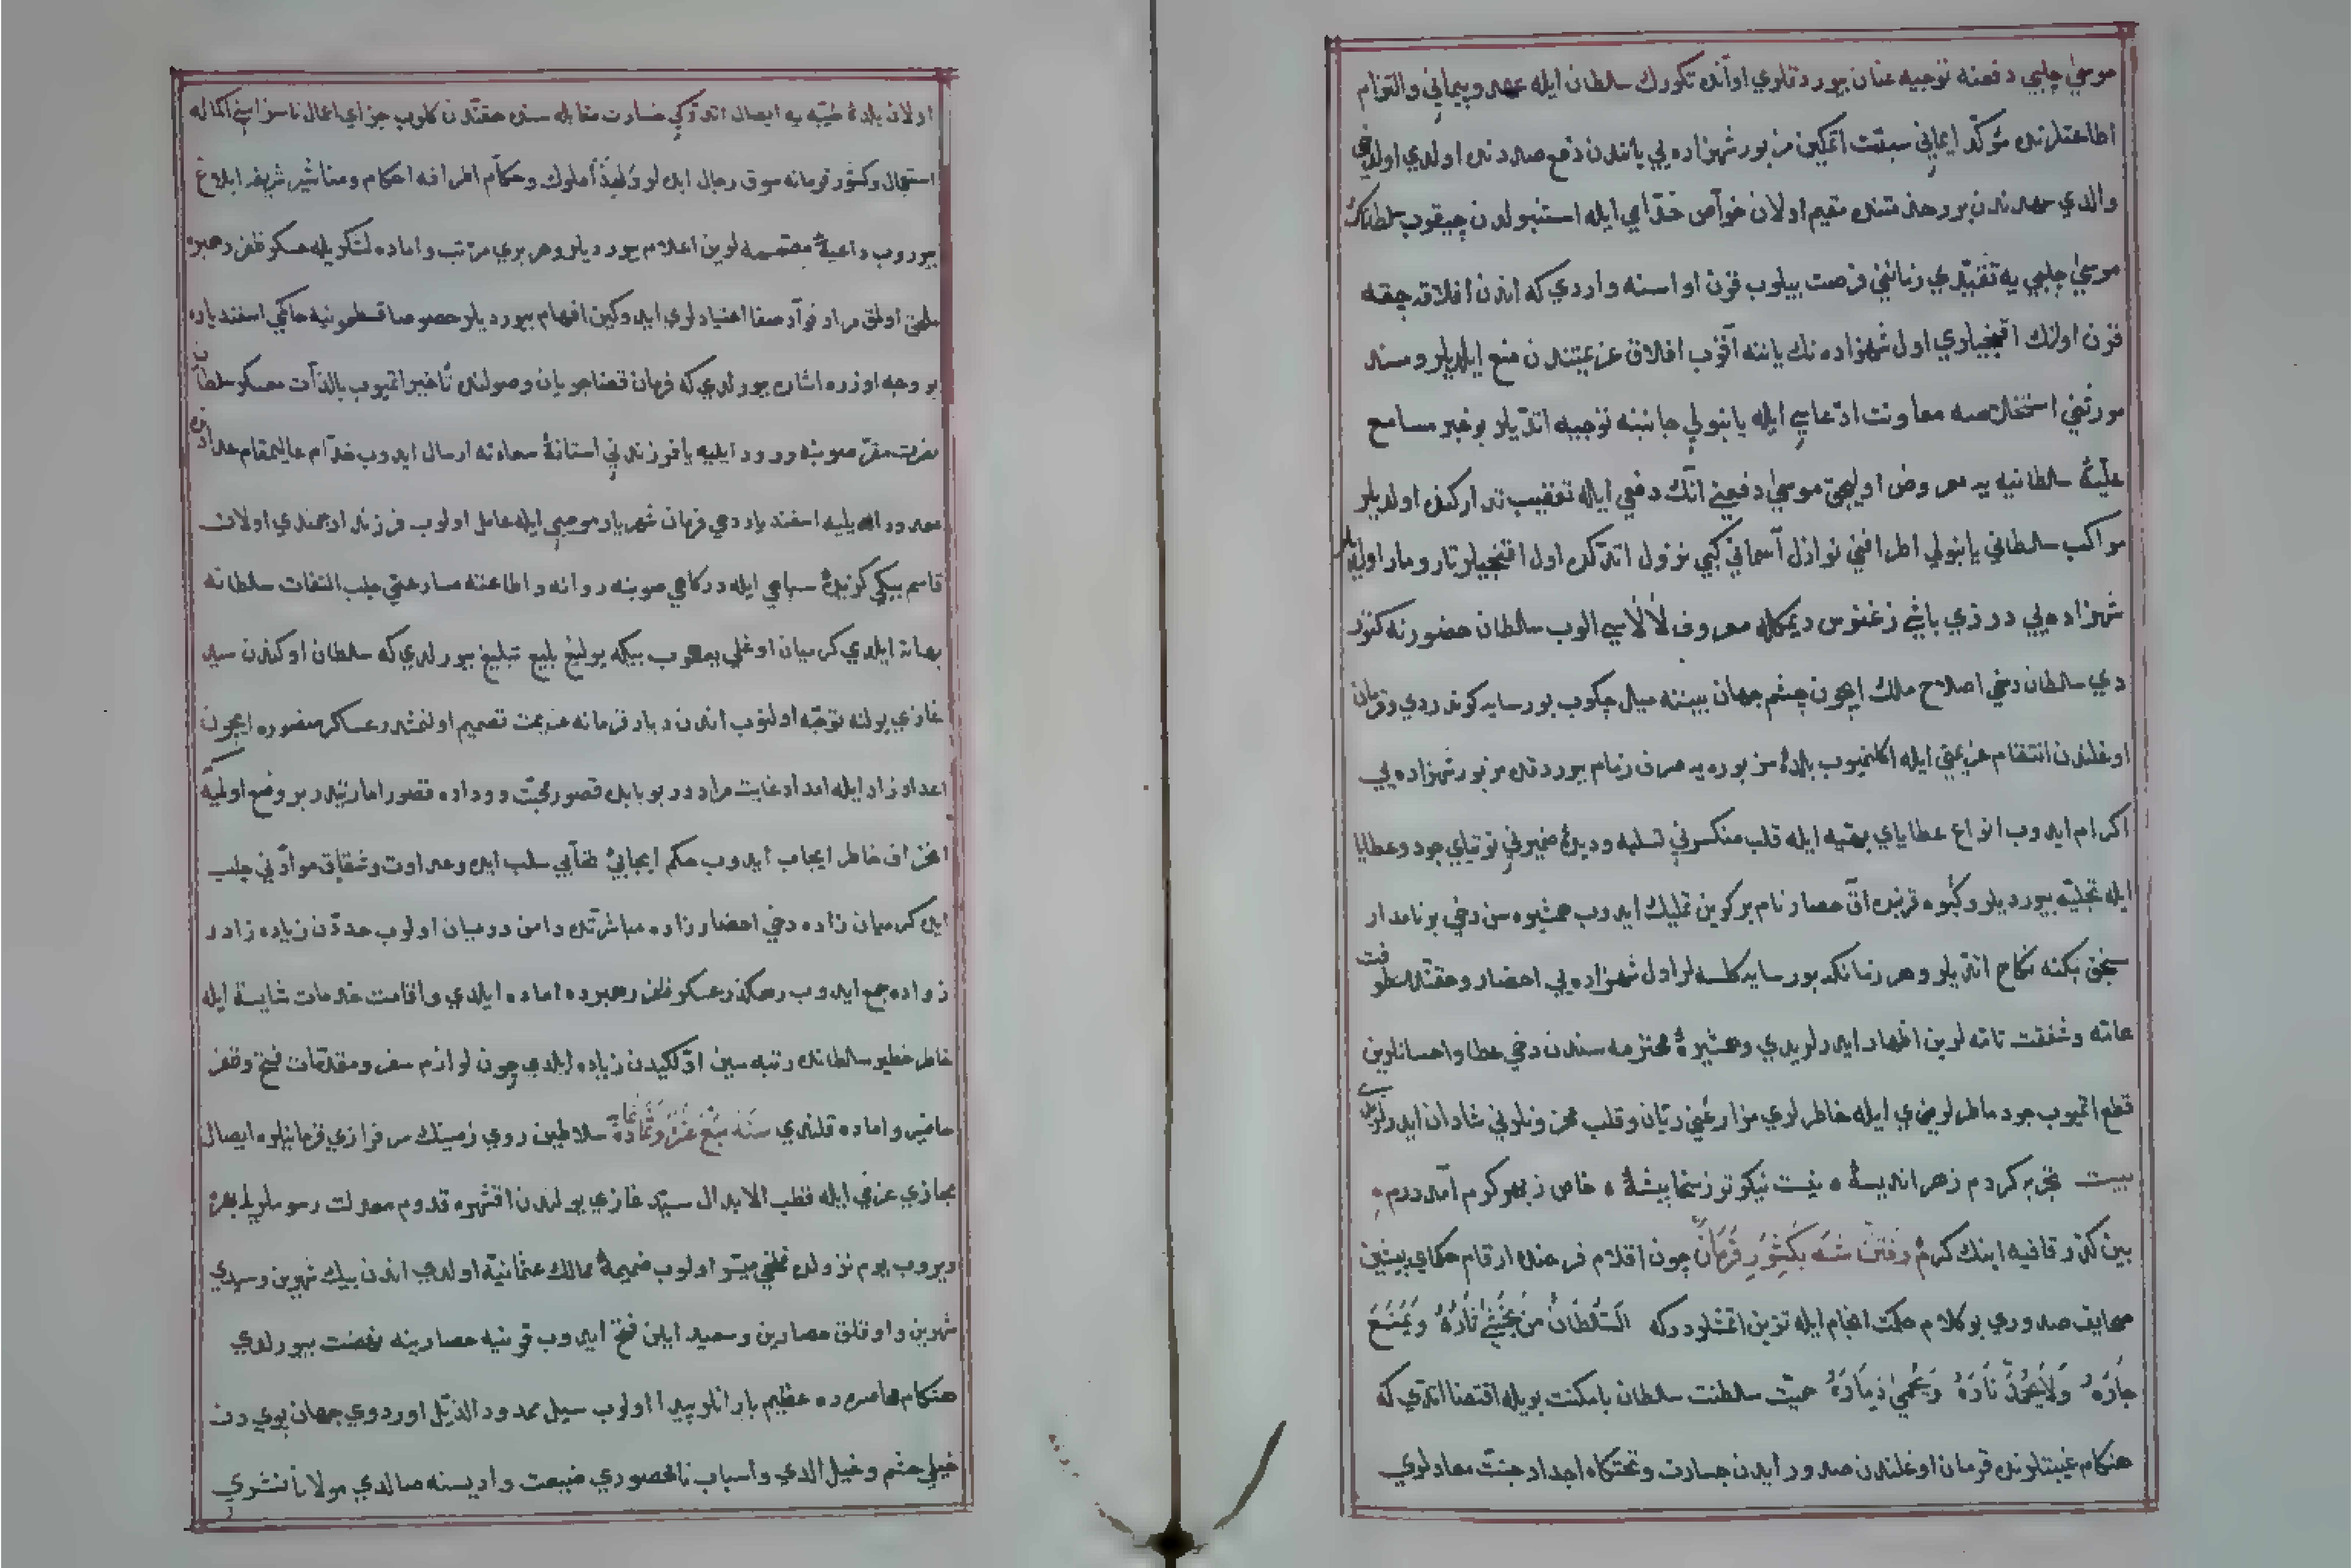 موسى چلبي دفعنه توجيه عنان بيوردقلري اوانده تكورك سلطان ايله عهد و پيماني والتزام
اطاعتلرنده مؤكد ايماني سبقت اتمكين مزبور شهزاده يي ياندن دفع صددنده اولدي اولدخي
والدي عهدندن بروجه متنده مقيم اولان خواص خدامي ايله استنبولدن چيقوب سلطانك
موسى چلبي يه تقيدي زمانني فرصت بيلوب قرن اواسنه واردي كه اندن افلاقه چقه
قرن اوانك اقنجيلري اول شهزاده نك ياننه آقوب افلاق عزيمتندن منع ايلديلر و سند
مورثني استخلاصه معاونت ادعاسي ايله يانبولي جانبنه توجيه اتديلر بو خبر مسامع
عليه سلطانيه يه معروض اوليجق موسى دفعني انك دفعي ايله تعقيب تداركنده اولديلر
مواكب سلطاني يانبولي اطرافني نوازل آسماني كبي نزول اتدكده اول اقنجيلر تار و مار اولديلر
شهزاده يي درزي باشي زغنوس ديمكله معروف لالاسي الوب سلطان حضورنه كتور
دي سلطان دخي اصلاح ملك ايچون چشم جهان بيننه ميل چكوب بورسايه كوندردي و قرمان
اوغلندن انتقام عزيمتي ايله اكلنميوب بلدۀ مزبوره يه صرف زمام بيوردقده مزبور شهزاده يي
اكرام ايدوب انواع عطاياي بهيه ايله قلب منكسرني تسليه و ديدۀ ضميرني توتياي جود و عطايا
ايله تجليه بيورديلر و كيوه قربنده اق حصار نام بر كوين تمليك ايدوب همشيره سن دخي بر نامدار
سنجق بكنه نكاح اتديلر و هر زمانكه بورسايه كلسه لر اول شهزاده يي احضار و حقنده عطوفت
عامه و شفقت تامه لرين اظهار ايدرلر يدي و همشيرۀ محترمه سندن دخي عطا و احسانلرين
قطع اتميوب جود ماطرلري ايله خاطرلري مزارعني ريان و قلب محزونلرني شادان ايدرلريدي
بيت تجربه كردم زهر انديشۀ نيست نيكوتر ز سخا پيشۀ خاص ز بهر كرم آمد درم
بين كه در قافيه اينك كرم رفتن شه بكشور قرمان چون اقلام فرخنده ارقام حكماي پيشين
صحايف صدوري بو كلام حكمت انجام ايله تزيين اتمشلردركه السلطان من يخشى ناره ويمنع
جاره ولا يخمد ناره ويحمي ذماره حميت سلطنت سلطان بامكنت بويله اقتضا اتدي كه
هنكام غيبتلرنده قرمان اوغلندن صدور ايدن جسارت و تختكاه اجداد جنت معادلري
اولان بلدۀ طيبه يه ايصال اتدوكي خسارت مقابله سنده حقندن كلوب جزاي اعمال ناسزاسني اكماله
استعجال و كشور قرمانه سوق رجال ايده لر ولهذا ملوك و حكام اطرافه احكام و مناشير شريفه ابلاغ
بيوروب داعيۀ مصممه لرين اعلام بيورديلر و هر بري مرتب و اماده لشكريله عسكر ظفر رهبره
ملحق اولمق مراد فواد صفا اعتيادلري ايدوكين افهام بيورديلر خصوصا قسطمونيه حاكمي اسفندياره
بر وجه اوزره اشاره بيورلدي كه فرمان قضا جريان وصولنده تأخير اتميوب بالذات معسكر سلطان
نصرت مقر صوبنه ورود ايليه يا فرزندني استانۀ سعادته ارسال ايدوب خدام عاليمقام عدادنده
معدود ايليه اسفنديار دخي فرمان شهريار موجبي ايله عامل اولوب فرزند ارجمندي اولان
قاسم بيكي كزيدۀ سپاهي ايله دركاهي صوبنه روانه و اطاعته مسارعتي جلب التفات سلطانه
بهانه ايلدي كرميان اوغلي يعقوب بيكه يرليغ بليغ تبليغ بيورلدي كه سلطان اوكندن سيد
غازي يولنه توجه اولنوب اندن ديار قرمانه عزيمت تصميم اولنمشدر عساكر منصوره ايچون
اعداد زاد ايله امداد غايت مراددر بو بابده قصور محبت و وداده قصور اماراتيدر بر وضع اولميه كه
انحراف خاطر ايجاب ايدوب حكم ايجابئ ظفايي سلب ايده و عداوت و شقاق موادني جلب
ايده كرميان زاده دخي احضار زاده مباشرتده دامن درميان اولوب حددن زياده زاد و
زواده جمع ايدوب رهكذر عسكر ظفر رهبرده اماده ايلدي و اقامت خدمات شايسته ايله
خاطر خطير سلطانده رتبه سين اولكيدن زياده ايلدي چون لوازم سفر و مقدمات فتح و ظفر
حاضر و اماده قلندي سنه سبع عشر وثمانمائة سلاطين روي زمينك سرفرازي فرمانبلره ايصال
مجازي عزمي ايله قطب الابدال سيد غازي يولندن اقشهره قدوم معدلت رسوملريله بهره
ويروب يوم نزولده فتحي ميسر اولوب ضميمۀ ممالك عثمانيه اولدي اندن بيك شهرين و سيدي
شهرين و اوتلق حصارين و سعيد ايلين فتح ايدوب قونيه حصارينه نهضت بيورلدي
هنكام محاصره ده عظيم بارانلر پيدا اولوب سيل ممدود الذيل اوردوي جهان پويدن
خيلي حشم و خيل الدي و اسباب نامحصوري ضيعت واديسنه صالدي مولانا نشري